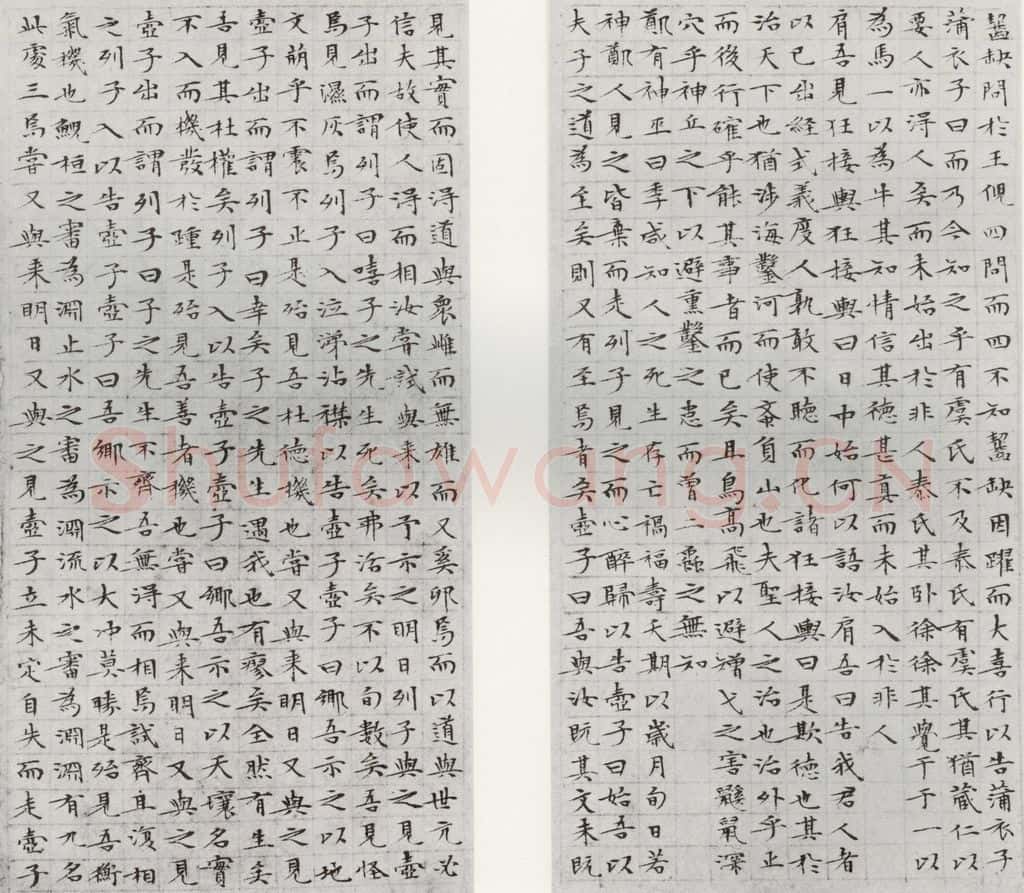 齧缺問於王倪四問而四不知齧缺因躍而大喜行以告蒲衣子
蒲衣子曰而乃今知之乎有虞氏不及泰氏有虞氏其猶藏仁以
要人亦得人矣而未始出於非人泰氏其卧徐徐其覺于于一以
為馬一以為牛其知情信其德甚真而未始入於非人
肩吾見狂接輿狂接輿曰日中始何以語汝肩吾曰告我君人者
以己出經式義度人孰敢不聽而化諸狂接輿曰是欺德也其於
治天下也猶涉海鑿河而使蚉負山也夫聖人之治也治外乎正
而後行確乎能其事者而已矣且鳥高飛以避矰弋之害鼷鼠深
穴乎神丘之下以避熏鑿之患而曾二蟲之無知
鄭有神巫曰季咸知人之死生存亡禍福壽夭期以歲月旬日若
神鄭人見之皆棄而走列子見之而心醉歸以告壺子曰始吾以
夫子之道為至矣則又有至焉者矣壺子曰吾與汝既其文未既
見其實而固得道與衆雌而無雄而又奚卵焉而以道與世亢必
信夫故使人得而相汝嘗試與來以予示之明日列子與之見壺
子出而謂列子曰嘻子之先生死矣弗活矣不以旬數矣吾見怪
焉見濕灰焉列子入泣涕沾襟以告壺子壺子曰鄉吾示之以地
文萌乎不震不止是殆見吾杜德機也嘗又與來明日又與之見
壺子出而謂列子曰幸矣子之先生遇我也有瘳矣全然有生矣
吾見其杜權矣列子入以告壺子壺子曰鄉吾示之以天壤名實
不入而機發於踵是殆見吾善者機也嘗又與來明日又與之見
壺子出而謂列子曰子之先生不齊吾無得而相焉試齊且復相
之列子入以告壺子壺子曰吾鄉示之以大沖莫勝是殆見吾衡
氣機也鯢桓之審為淵止水之審為淵流水之審為淵淵有九名
此處三焉嘗又與來明日又與之見壺子立未定自失而走壺子
Shufawang.CN